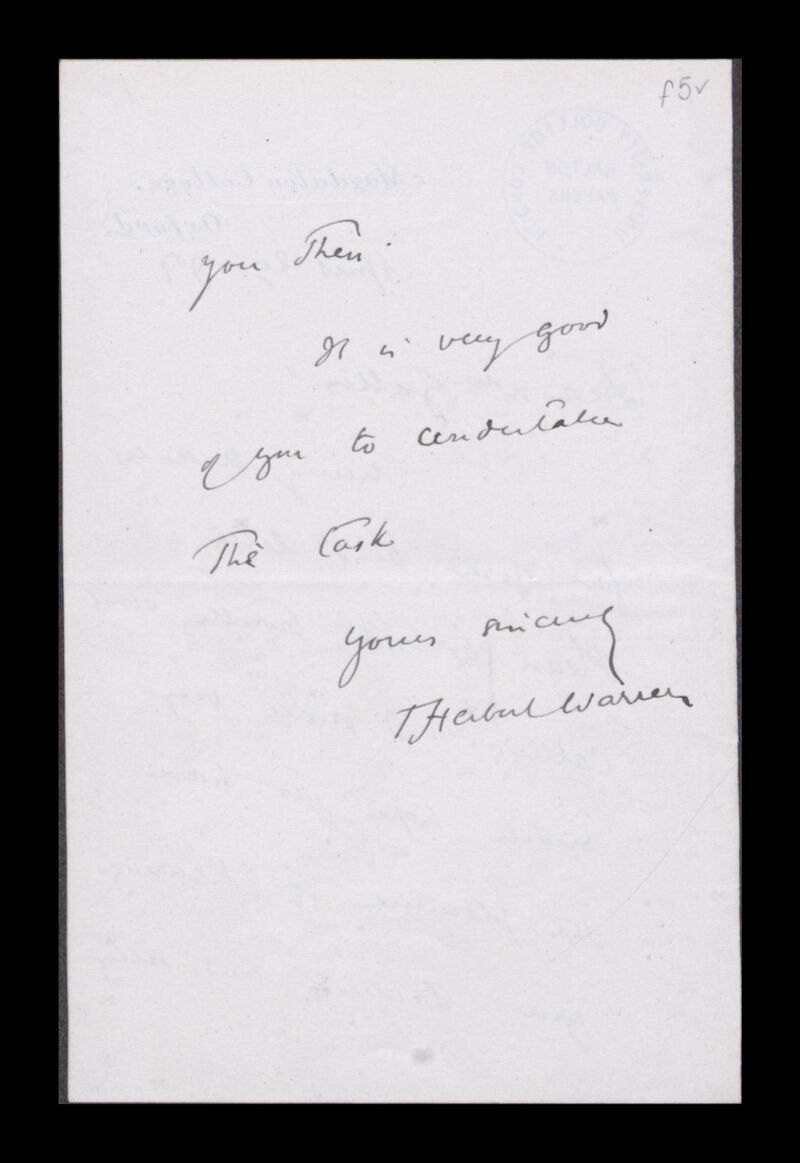 f5v
you then.
It is very good
of you to undertake
the task
Yours sincerely
T Herbert Warren